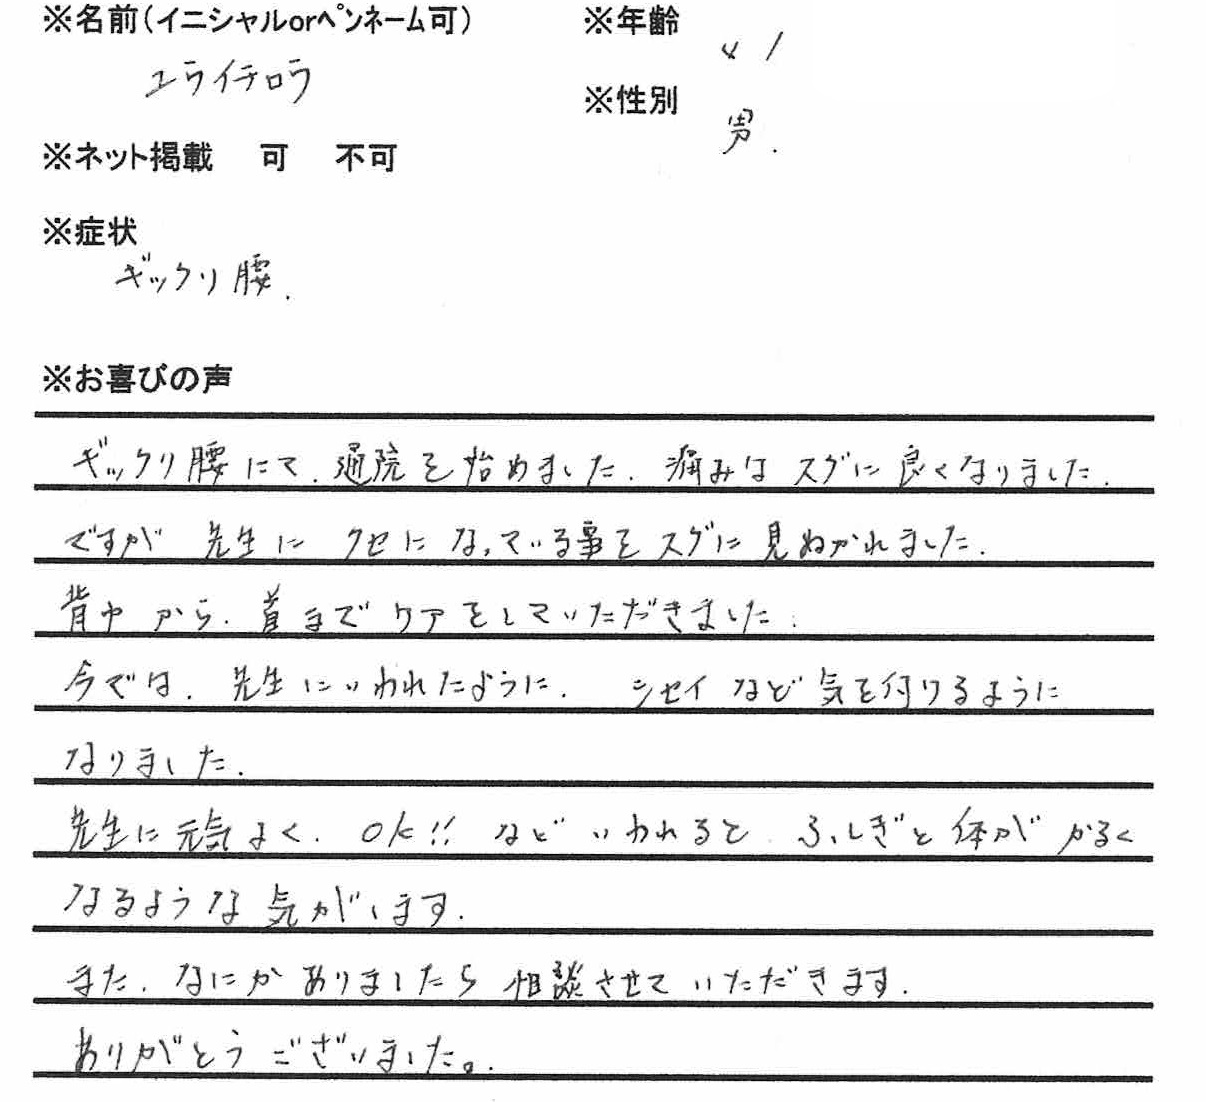 ※名前(イニシャルorペンネーム可)
ユライチロウ
※年齢
41
※性別
男.
※ネット掲載 可 不可
※症状
ギックリ腰.
※お喜びの声
ギックリ腰にて.通院を始めました.痛みはスグに良くなりました.
ですが 先生に クセになっている事をスグに見ぬかれました.
背中から.首までケアをしていただきました.
今では.先生にいわれたように. シセイなど気を付けるように
なりました.
先生に元気よく.OK!! など いわれると ふしぎと体がかるく
なるような気がします.
また.なにかありましたら相談させていただきます.
ありがとうございました。.